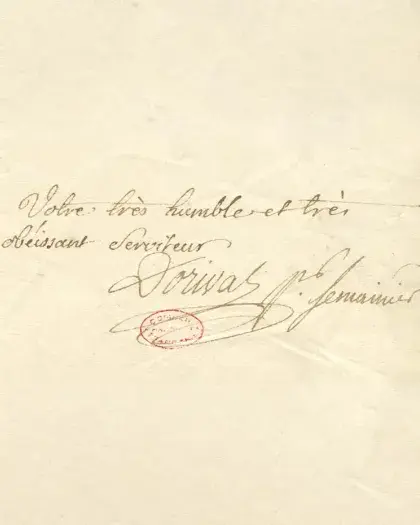 Votre très humble et très
obéissant Serviteur
Dorival p.r Semainier